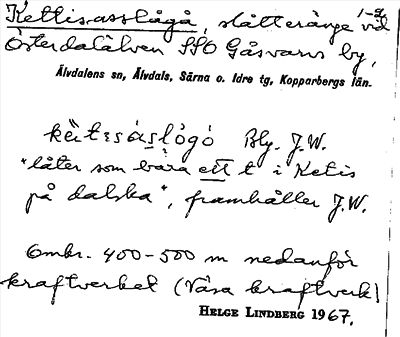 Kettis-asslågå, slåtteränge vid 1-2
Österdalälven SSO Gåsvarvs by,
Älvdalens sn, Älvdals, Särna o. Idre tg, Kopparbergs län.
kètisáslògó Bly. J.W.
"låter som bara ett t i Ketis
på dalska", framhåller J.W.
Ombr. 400-500 m nedanför
kraftverket (Våsa kraftverk)
HELGE LINDBERG 1967.